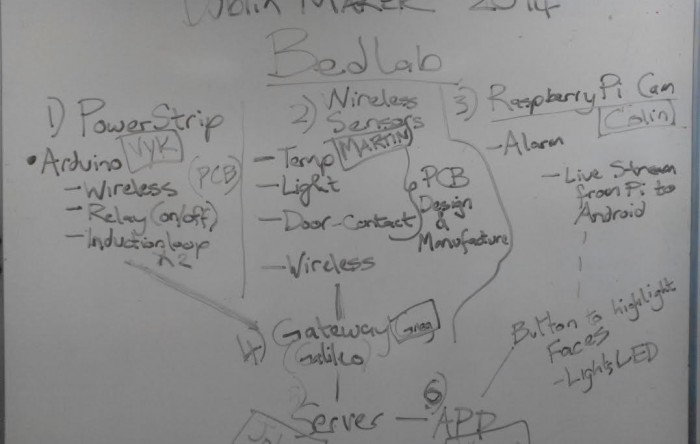 Dublin MAKER 2014
BedLab
1) PowerStrip
VYK
• Arduino
(PCB)
- Wireless
- Relay (on/off)
- Induction loop
x2
2) Wireless
Sensors
MARTIN
- Temp
- Light
- Door-Contact
- Wireless
PCB
Design
&
Manufacture
3) RaspberryPi Cam
Colin
- Alarm
- Live Stream
from Pi to
Android
Button to highlight
Faces
- Lights LED
4) Gateway
Greg
Galileo
Server - APP
6)